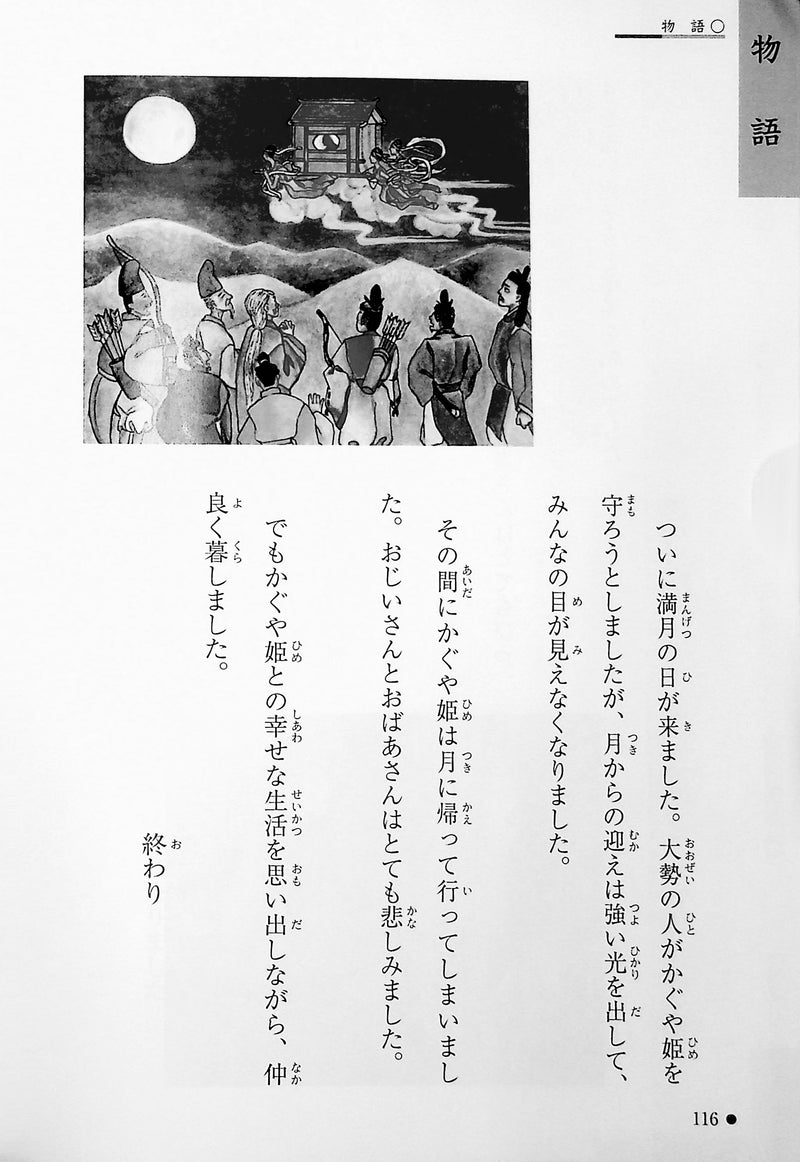 物語
物語○
ついに満月の日が来ました。大勢の人がかぐや姫を
守ろうとしましたが、月からの迎えは強い光を出して、
みんなの目が見えなくなりました。
その間にかぐや姫は月に帰って行ってしまいまし
た。おじいさんとおばあさんはとても悲しみました。
でもかぐや姫との幸せな生活を思い出しながら、仲
良く暮しました。
終わり
116●